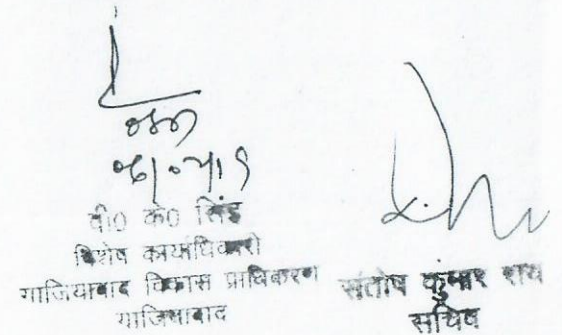 वी0 के0 सिंह
विशेष कार्याधिकारी
गाजियाबाद विकास प्राधिकरण
गाजियाबाद
संतोष कुमार राय
सचिव